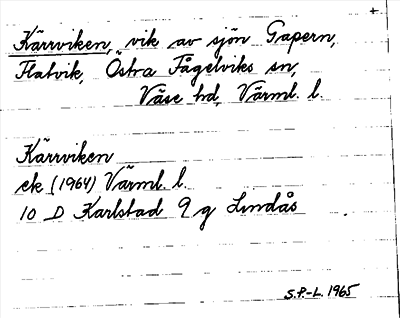 Kärrviken, vik av sjön Gapern,
Flatvik, Östra Fågelviks sn,
Väse hd, Värml. l.
Kärrviken
ek (1964) Värml. l.
10 D Karlstad 9 g Lindås
S.P.-L. 1965